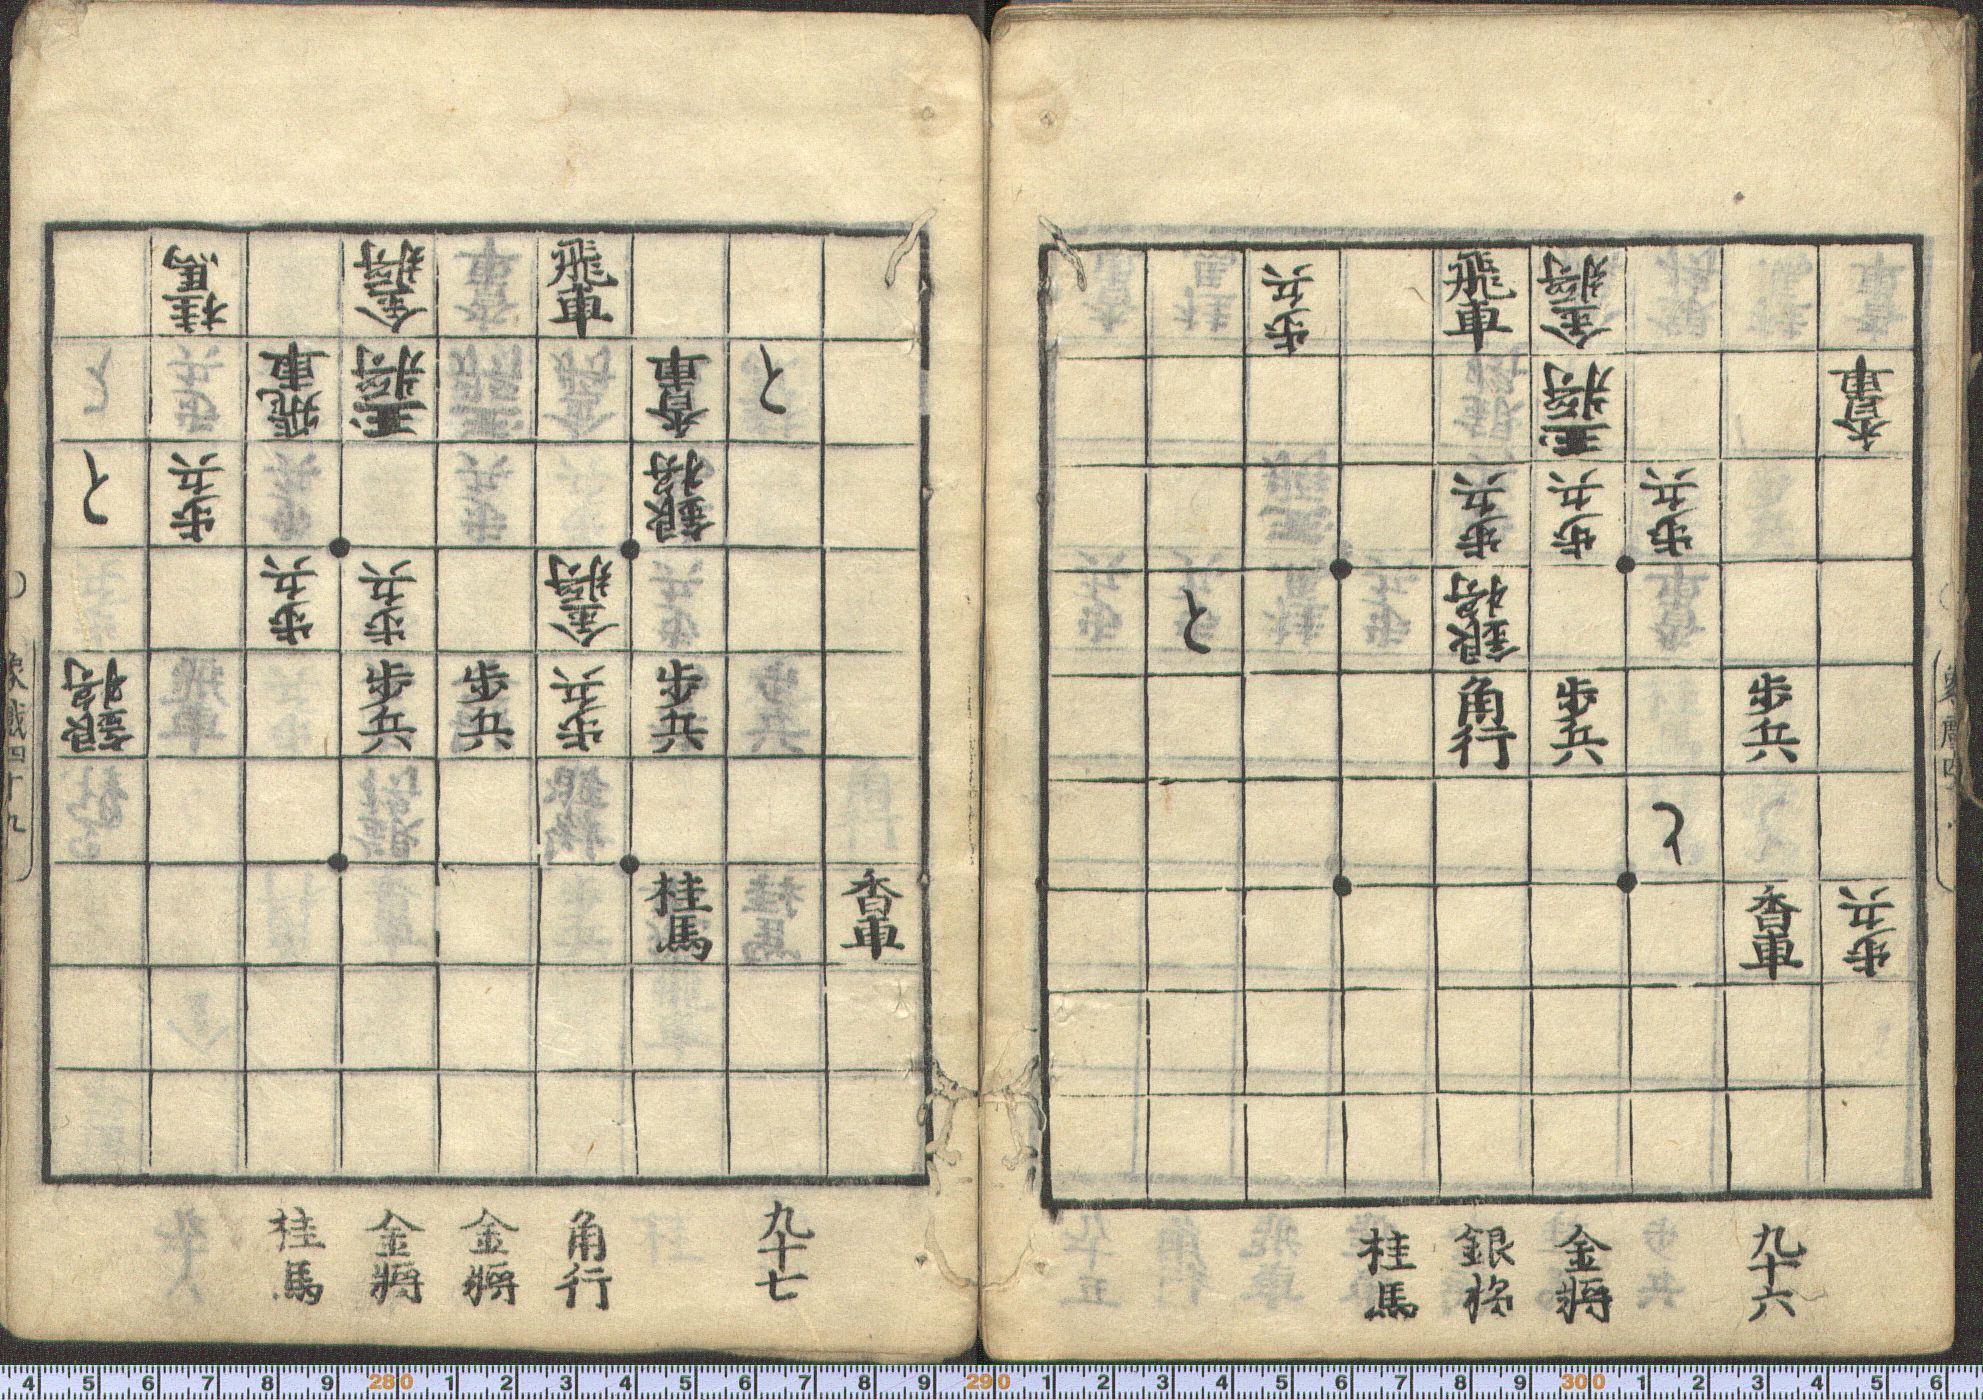 金將
飛車
歩兵
香車
玉將
歩兵
歩兵
歩兵
銀將
と
歩兵
歩兵
角行
と
歩兵
香車
九十六
金將
銀將
桂馬
飛車
金將
桂馬
と
香車
玉將
飛車
銀將
歩兵
と
金將
歩兵
歩兵
歩兵
歩兵
歩兵
歩兵
銀將
香車
桂馬
九十七
角行
金將
金將
桂馬
四十九
4 5 6 7 8 9 280 1 2 3 4 5 6 7 8 9 290 1 2 3 4 5 6 7 8 9 300 1 2 3 4 5 6